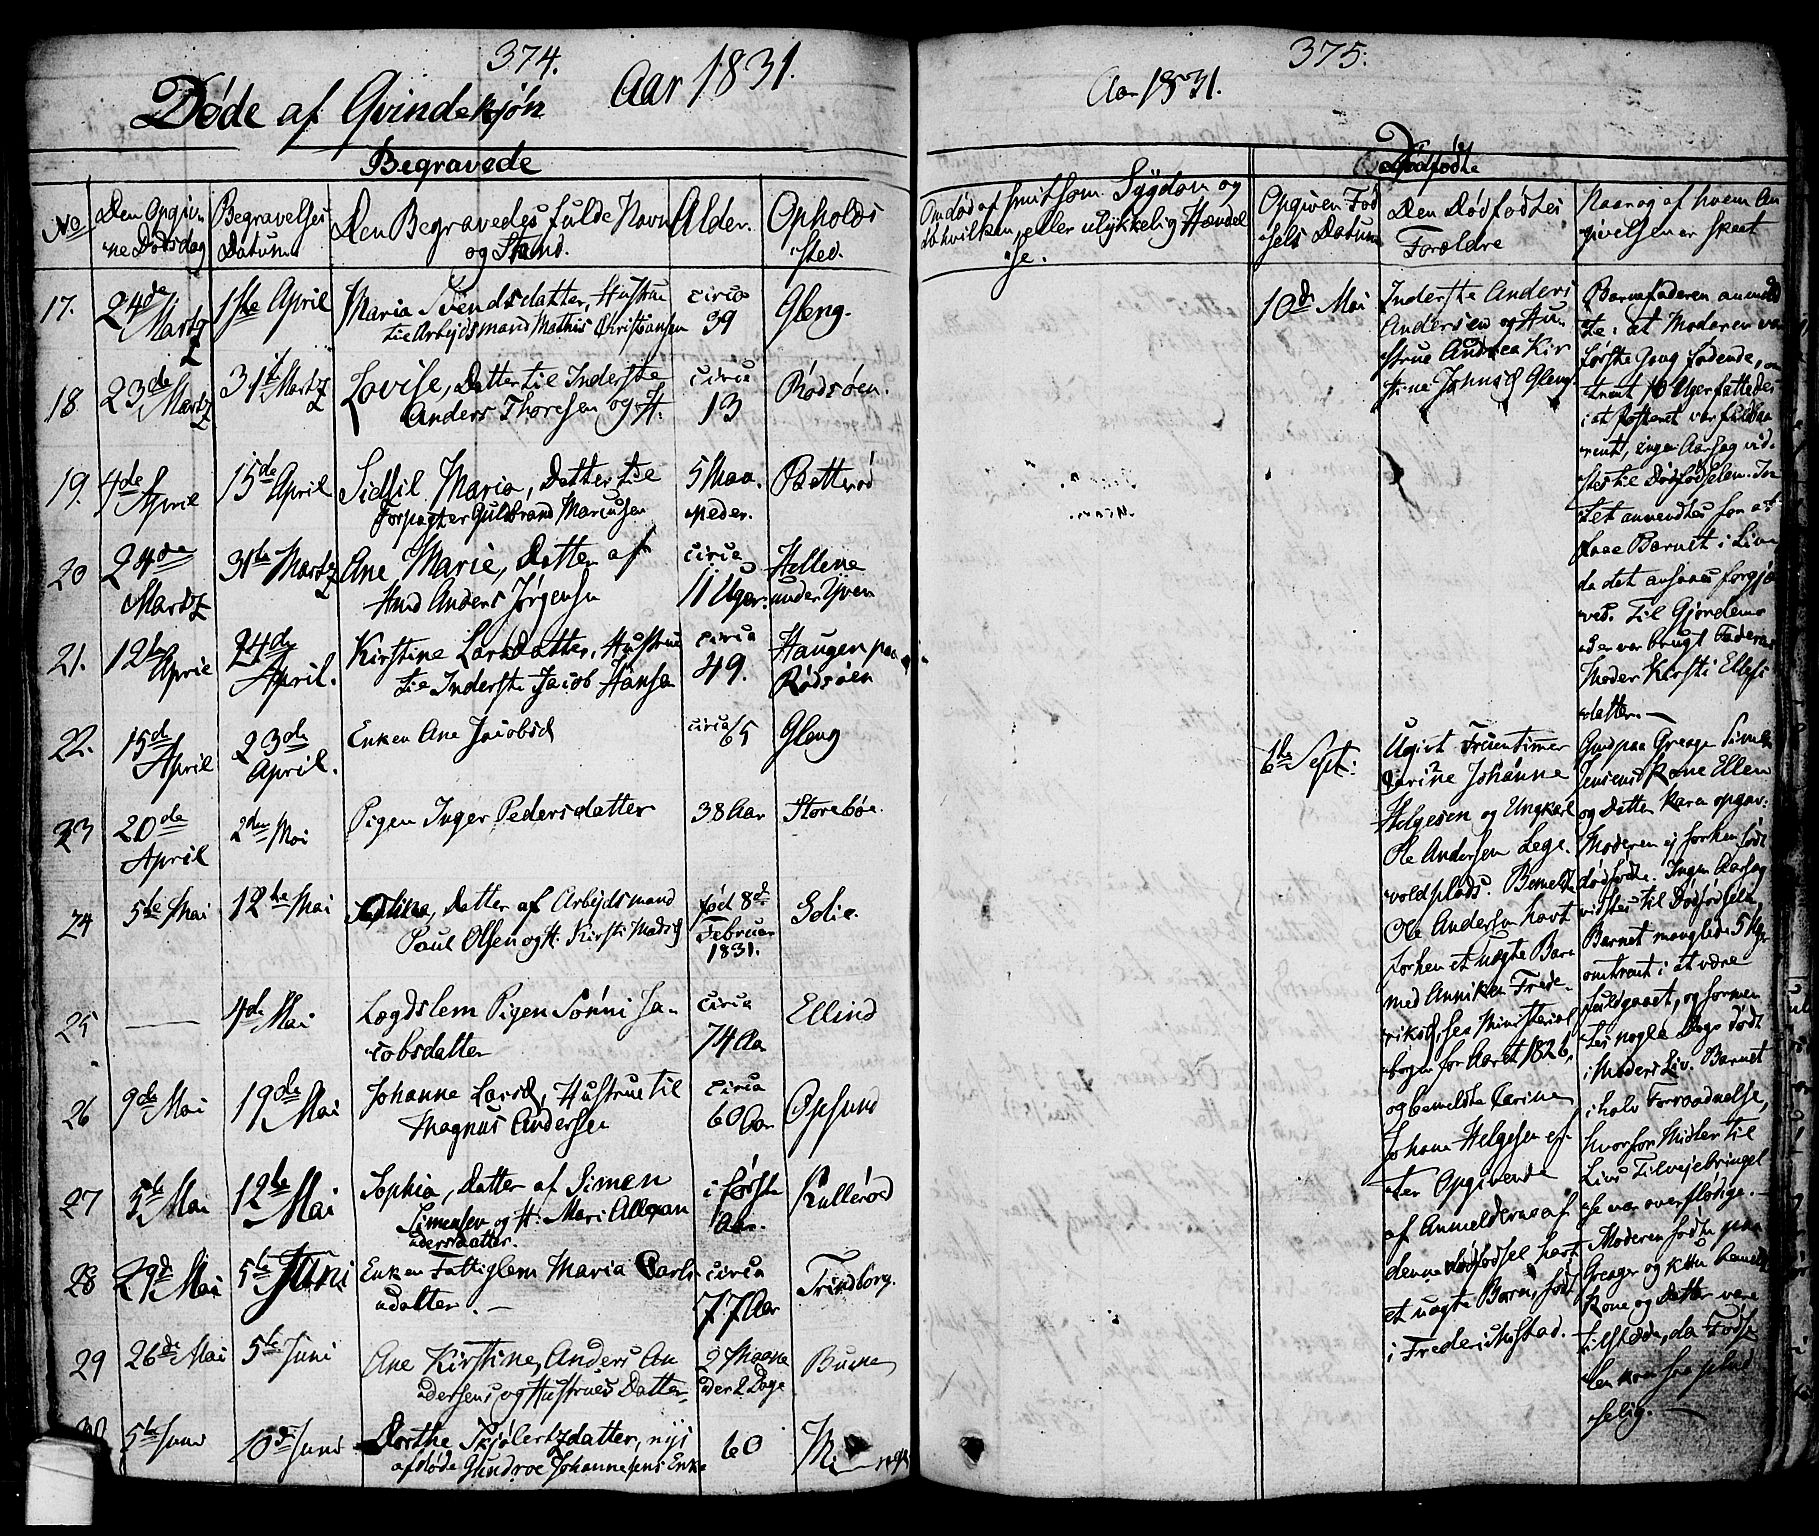 374.
Døde af Qvindekjøn
Aar 1831.
Begravede
No
Den Opgiv-
ne Dødsdag
Begravelses
Datum
Den Begravedes fulde Navn
og Stand.
Alder.
Opholds
sted.
17.
24de
Martz
1ste April
Maria Svendsdatter, Hustrue
til Arbejdsmand Mathis Christiansen
circa
39
Gleng.
18
23de
Martz
31te Martz
Lovise, Datter til Inderste
Anders Thoresen og H.
circa
13
Rødsøen.
19.
4de
April
15de April
Sidsil Maria, Datter til
Forpagter Guldbrand Mariusen
5 Maa-
neder.
Batterød
20
24de
Martz
31te Martz
Ane Marie, Datter af
Hmd Anders Jørgensen
circa
11 Uger.
Hellene
under Yven
21.
12te
April
24de
April.
Kirstine Larsdatter, Hustrue
til Inderste Jacob Hansen
circa
49.
Haugen paa
Rødsøen
22.
15de
April
23de
April.
Enken Ane Jacobsd
circa
65
Gleng
23
20de
April
2den Mai
Pigen Inger Pedersdatter
38 Aar
Storebøe.
24
5te Mai
12te Mai
Datter af Arbejdsmand
Paul Olsen og H. Kirsti Madsd
født 8de
Februar
1831.
Solie.
25
4de Mai
Lægdslem Pigen Sønni Ja-
cobsdatter
circa
74 Aar
Ellind
26
9de Mai
19de Mai
Johanne Larsd, Hustrue til
Magnus Andersen
circa
60 Aar
Opsund
27
5te Mai
12te
Mai
Sophia, Datter af Simen
Simensen og H. Mari Allexan-
dersdatter.
i første
Aar.
Kullerød
28
29de Mai
5te Juni
Enken Fattiglem Maria Carls-
datter.
circa
77 Aar
Trindborg.
29
26de Mai
5te Juni
Ane Kirstine, Anders An-
dersens og Hustrues Datter
2 Maane-
der 2 Dage
30
5te Juni
10de Juni
Dorthe Skjølertzdatter, nys
afdøde Gundroe Johannesens Enke
60
375.
Aar 1831.
Dødfødte
Om død af smitsom Sygdom og
da hvilken, eller ulykkelig Hændel
se.
Opgiven Fød
sels Datum
Den Dødfødtes
Forældre
Naar og af hvem An
givelsen er skeet
10de Mai
Inderste Anders
Andersen og Hu-
strue Andrea Kir
stine Johnsd Gleng.
Barnefaderen anmeld
te: at Moderen var
første Gang fødende, om
trent 10 Uger fattedes
i at Fosteret var fuldbaa
rent, ingen Aarsag vid-
stes til Dødfødselen. In
tet anvendtes for at
faae Barnet i Live
da det ansaaes forgjæ
ves. Til Gjordemo
der var brugt Faderens
Moder Kirsti Ellefs
datter.
6te Sept:
Ugivt Fruentimmer
Carine Johanne
Helgesen og Ungkarl
Ole Andersen Lege-
voldplads. Bemeldte
Ole Andersen havt
forhen et uægte Barn
med Anniken Frede-
riksd, sea Ministerial
bogen for Aaret 1826,
og bemeldte Carine
Johane Helgesen ef-
ter Opgivende
af Anmelderne af
denne Dødfødsel havt
et uægte Barn, født
i Frederikstad.
Gmd paa Greager Simen
Jensens Kone Ellen
og Datter Karen opgav:
Moderen ej forhen født
dødfødte. Ingen Aarsag
vidstes til Dødfødselen,
Barnet manglede 5 Uger
omtrent i at være
fuldgaaet, og formen-
tes nogle Dage dødt
i Moders Liv. Barnet
i halv Forraadnelse,
hvorfor Midler til
Livs Tilvejebringel
se var overflødige.
Moderen fødte paa
Greager og kun
Kone og Datter vare
tilstæde, da Fødse
len kom saa plud
selig.